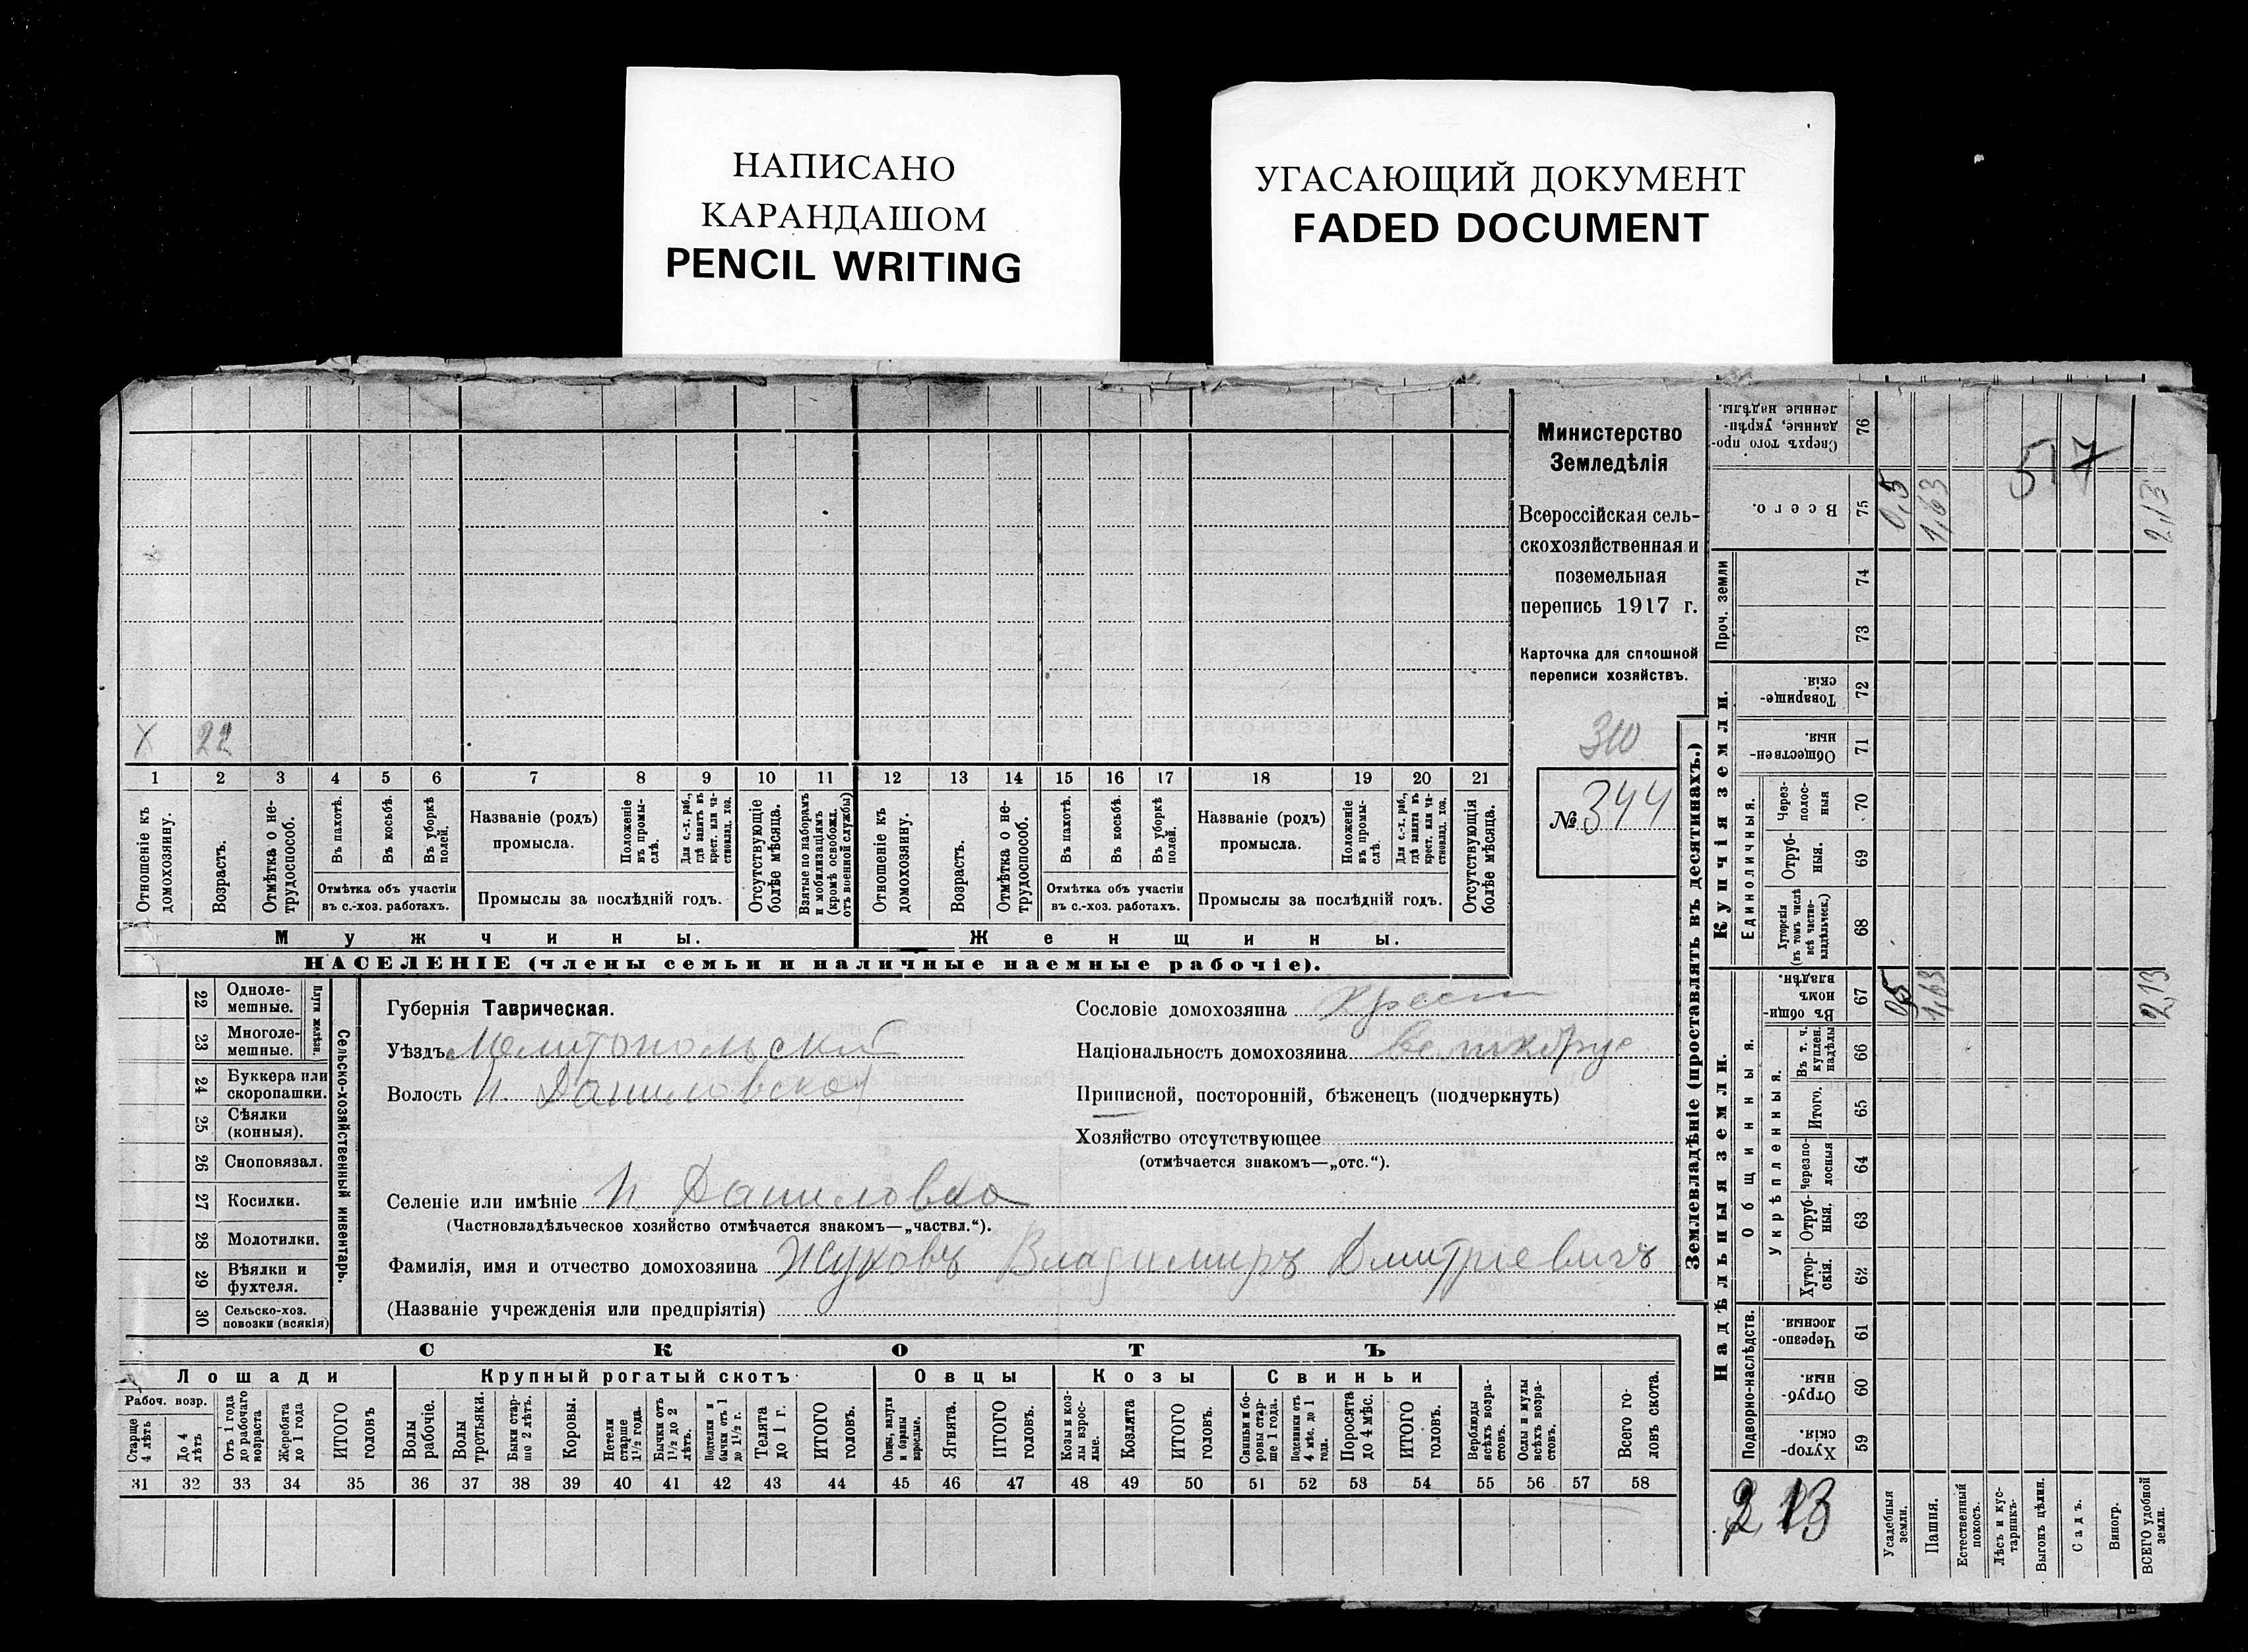 НАПИСАНО
КАРАНДАШОМ
PENCIL WRITING
УГАСАЮЩИЙ ДОКУМЕНТ
FADED DOCUMENT
Министерство
Земледѣлія
Всероссійская сель-
скохозяйственная и
поземельная
перепись 1917 г.
Карточка для сплошной
переписи хозяйствъ.
310
№ 344
X 22
1 2 3 4 5 6 7 8 9 10 11 12 13 14 15 16 17 18 19 20 21
Отношеніе къ домохозяину.
Возрастъ.
Отмѣтка о не-трудоспособ.
Въ пахотѣ.
Въ косьбѣ.
Въ уборкѣ полей.
Отмѣтка объ участіи
въ с.-хоз. работахъ.
Названіе (родъ)
промысла.
Положеніе въ промы-слѣ.
Для с.-х. раб., гдѣ занятъ въ крест. или ча-стновлад. хоз.
Промыслы за послѣдній годъ.
Отсутствующіе болѣе мѣсяца.
Взятые по наборамъ и мобилизаціямъ (кромѣ освобожд. отъ военной службы)
Отношеніе къ домохозяину.
Возрастъ.
Отмѣтка о не-трудоспособ.
Въ пахотѣ.
Въ косьбѣ.
Въ уборкѣ полей.
Отмѣтка объ участіи
въ с.-хоз. работахъ.
Названіе (родъ)
промысла.
Положеніе въ промы-слѣ.
Для с.-х. раб., гдѣ занята въ крест. или ча-стновлад. хоз.
Промыслы за послѣдній годъ.
Отсутствующія болѣе мѣсяца.
Мужчины.
Женщины.
НАСЕЛЕНІЕ (члены семьи и наличные наемные рабочіе).
22 Одноле-мешные.
23 Многоле-мешные.
Плуги желѣзн.
24 Буккера или скоропашки.
25 Сѣялки (конныя).
26 Сноповязал.
27 Косилки.
28 Молотилки.
29 Вѣялки и фухтеля.
30 Сельско-хоз. повозки (всякія)
Сельско-хозяйственный инвентарь.
Губернія Таврическая.
Уѣздъ Мелитопольскій
Волость Н. Даниловская
Селеніе или имѣніе Н. Даниловка
(Частновладѣльческое хозяйство отмѣчается знакомъ—„частвл.“).
Фамилія, имя и отчество домохозяина Жуковъ Владимиръ Дмитріевичъ
(Названіе учрежденія или предпріятія)
Сословіе домохозяина Крест
Національность домохозяина великорус
Приписной, посторонній, бѣженецъ (подчеркнуть)
Хозяйство отсутствующее
(отмѣчается знакомъ—„отс.“).
СКОТЪ
Лошади
Крупный рогатый скотъ
Овцы
Козы
Свиньи
Рабоч. возр.
Старше 4 лѣтъ
До 4 лѣтъ
Отъ 1 года до рабочаго возраста
Жеребята до 1 года
ИТОГО головъ
Волы рабочіе.
Волы третьяки.
Быки стар-ше 2 лѣтъ.
Коровы.
Нетели старше 1½ года.
Бычки отъ 1½ до 2 лѣтъ.
Подтелки и бычки отъ 1 до 1½ г.
Телята до 1 г.
ИТОГО головъ.
Овцы, валухи и бараны взрослые.
Ягнята.
ИТОГО головъ.
Козы и коз-лы взрос-лые.
Козлята
ИТОГО головъ.
Свиньи и бо-ровы стар-ше 1 года.
Подсвинки отъ 4 мѣс. до 1 года.
Поросята до 4 мѣс.
ИТОГО головъ.
Верблюды всѣхъ возра-стовъ.
Ослы и мулы всѣхъ возра-стовъ.
Всего го-ловъ скота.
31 32 33 34 35 36 37 38 39 40 41 42 43 44 45 46 47 48 49 50 51 52 53 54 55 56 57 58
Землевладѣніе (проставлять въ десятинахъ.)
Надѣльныя земли.
Купчія земли.
Проч. земли
Подворно-наслѣдств.
Общинныя.
Укрѣпленныя.
Единоличныя.
Хутор-скія. 59
Отруб-ныя. 60
Черезпо-лосныя 61
Хутор-скія. 62
Отруб-ныя. 63
Черезпо-лосныя 64
Итого. 65
Въ т. ч. куплен. надѣлы 66
Въ общи-номъ владѣн. 67
Хуторскія (въ томъ числѣ всѣ частно-владѣльческ.) 68
Отруб-ныя. 69
Через-полос-ныя 70
Обществен-ныя. 71
Товарище-скія. 72
73
74
Всего. 75
Сверхъ того про-данные, укрѣп-ленные надѣлы. 76
0,5 1,63 2,13
0,5 1,63 2,13
517
2 13
Усадебныя земли.
Пашня.
Естественный покосъ.
Лѣсъ и кус-тарникъ.
Выгонъ цѣлин.
Садъ.
Виногр.
ВСЕГО удобной земли.